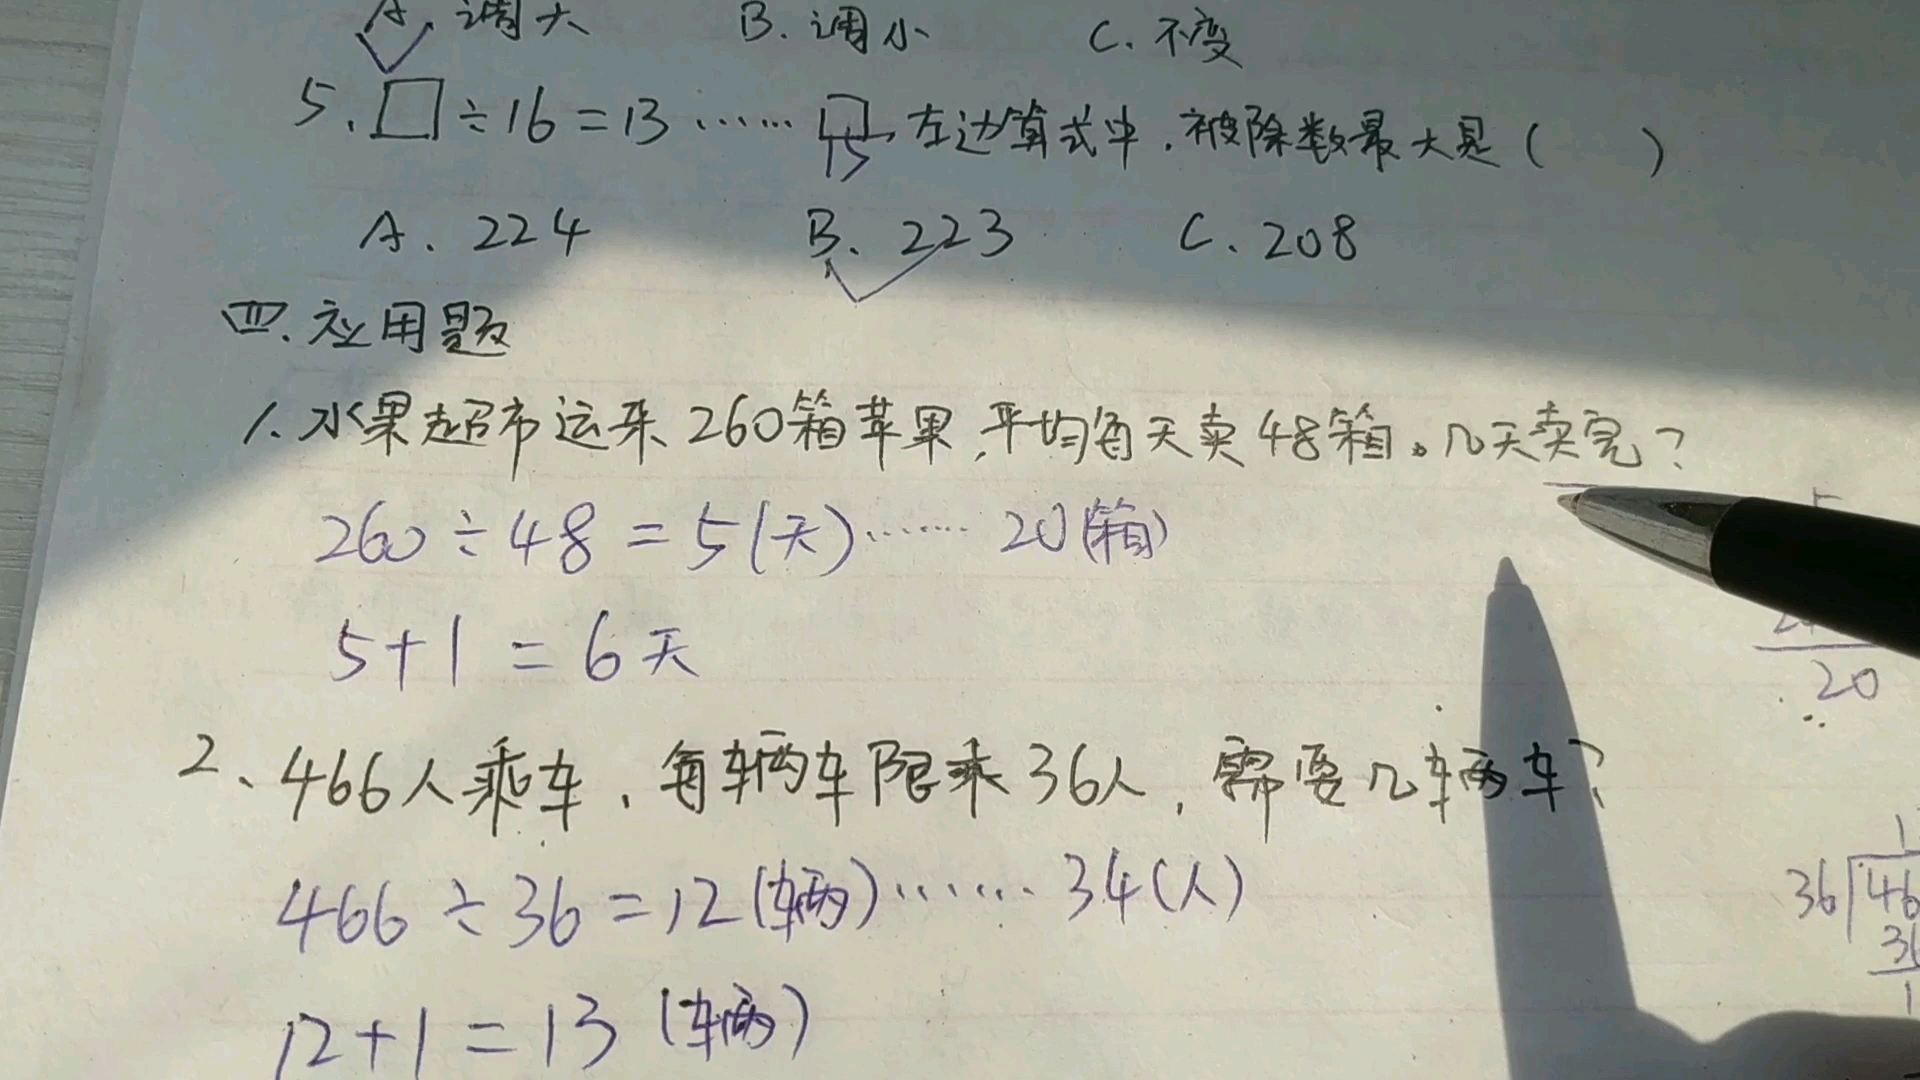 A. 调大 B. 调小 C. 不变
5. □÷16=13……□ 左边算式中,被除数最大是( )
15
A. 224 B. 223 C. 208
四. 应用题
1. 水果超市运来260箱苹果,平均每天卖48箱。几天卖完?
260÷48=5(天)……20(箱)
5+1=6天
20
2、466人乘车,每辆车限乘36人,需要几辆车?
466÷36=12(辆)……34(人)
36 46
12+1=13(辆)